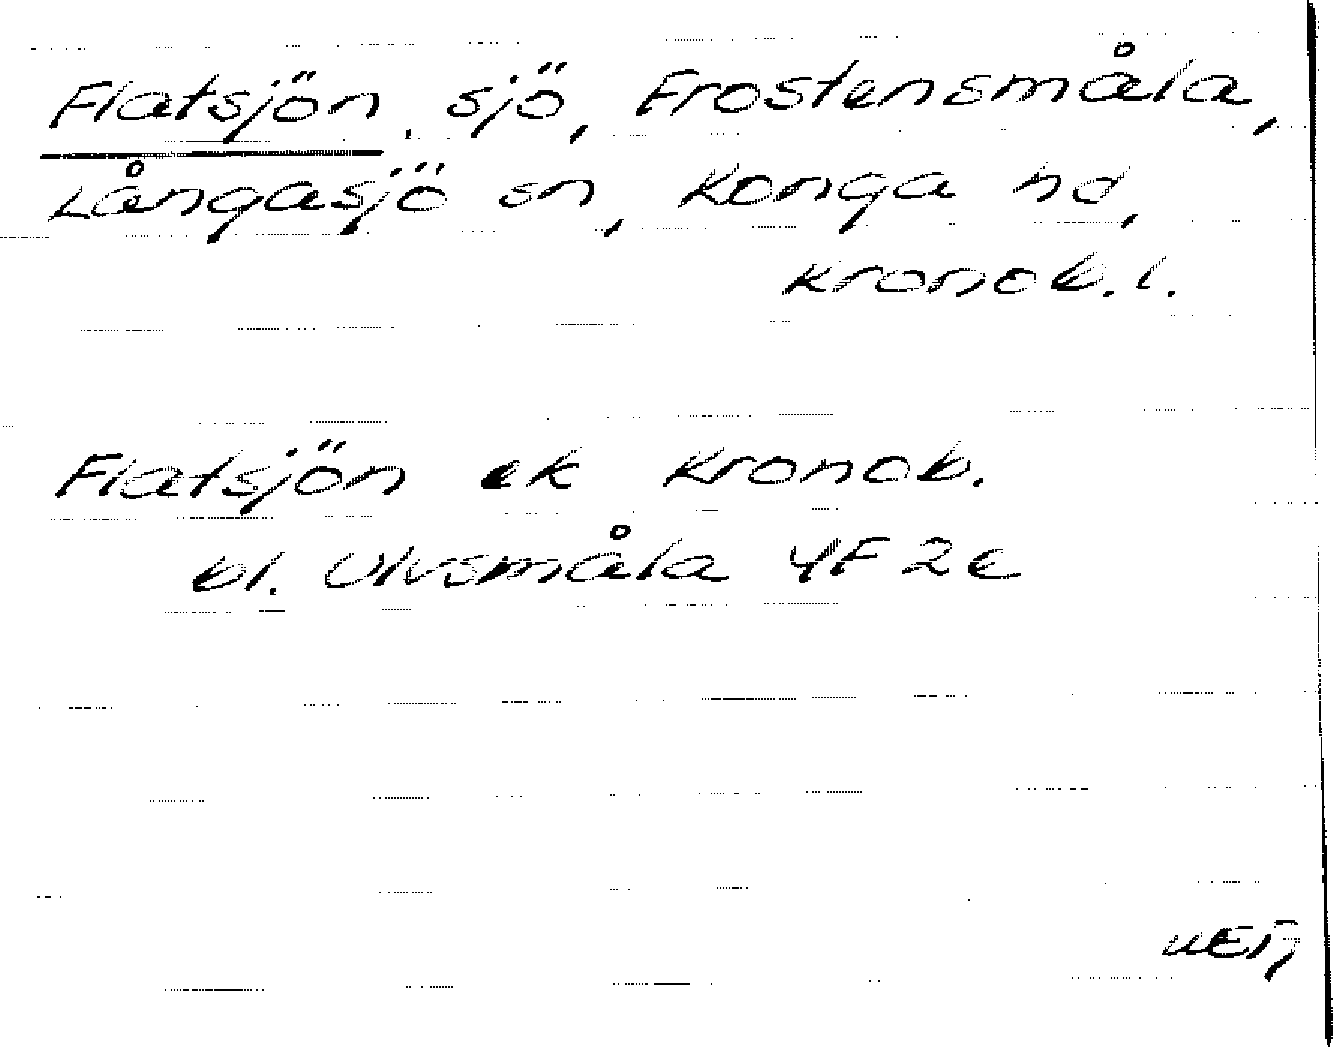 Flatsjön, sjö, Frostensmåla,
Långasjö sn, Konga hd,
Kronob. l.
Flatsjön ek Kronob.
bl. Ulvsmåla 4F 2e